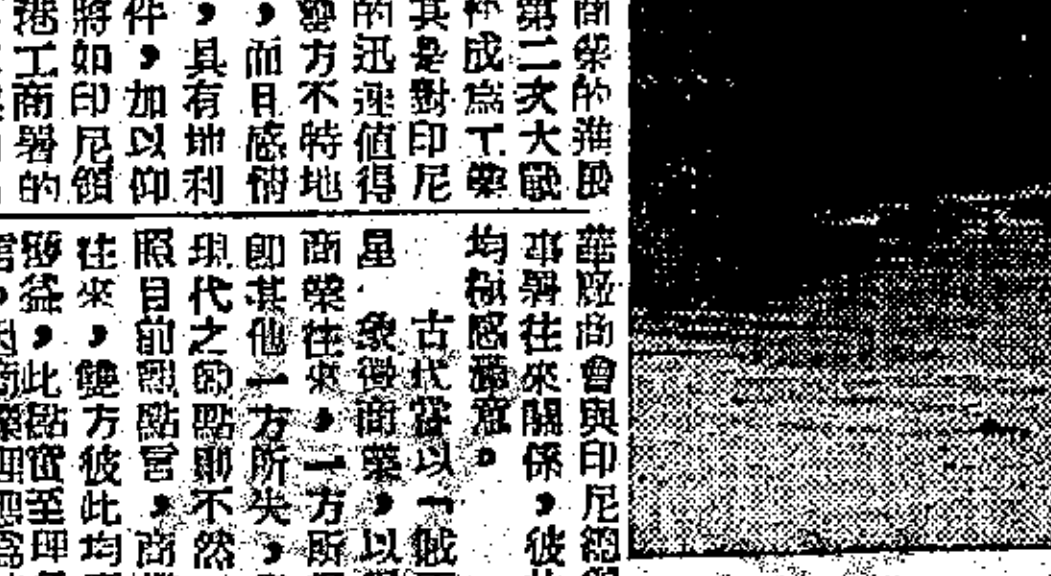 商業的進展
第二次大戰
成爲工業
其是對印尼
的迅速值得
雙方不特地
，而且感情
，具有地利
件，加以仰
將如印尼領
港工商署的
華廠商會與印尼總
事署往來關係，彼
均極感滿意。
古代當以一賊
星象徵商業，以
商業往來，一方所
即其他一方所失，
現代之觀點則不然
照目前觀點言，商
往來，雙方彼此均
獲益，此點實至理